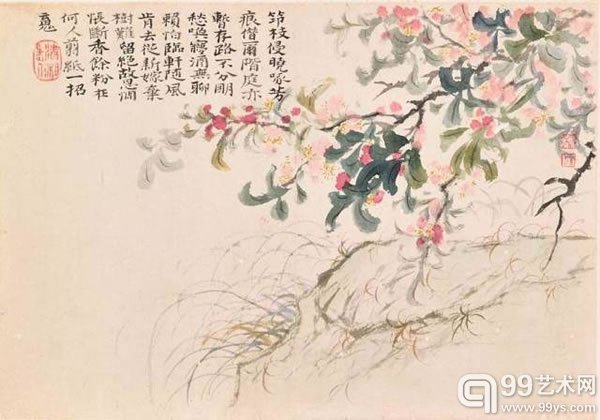 筇枝侵曉啄芳
痕借爾階庭亦
暫存路不分明
愁喚夢酒無聊
賴怕臨軒随風
肯去從新嫁棄
樹難留絕故恩惆
悵斷香餘粉在
何人剪紙一招
魂
99艺术网
www.99ys.com